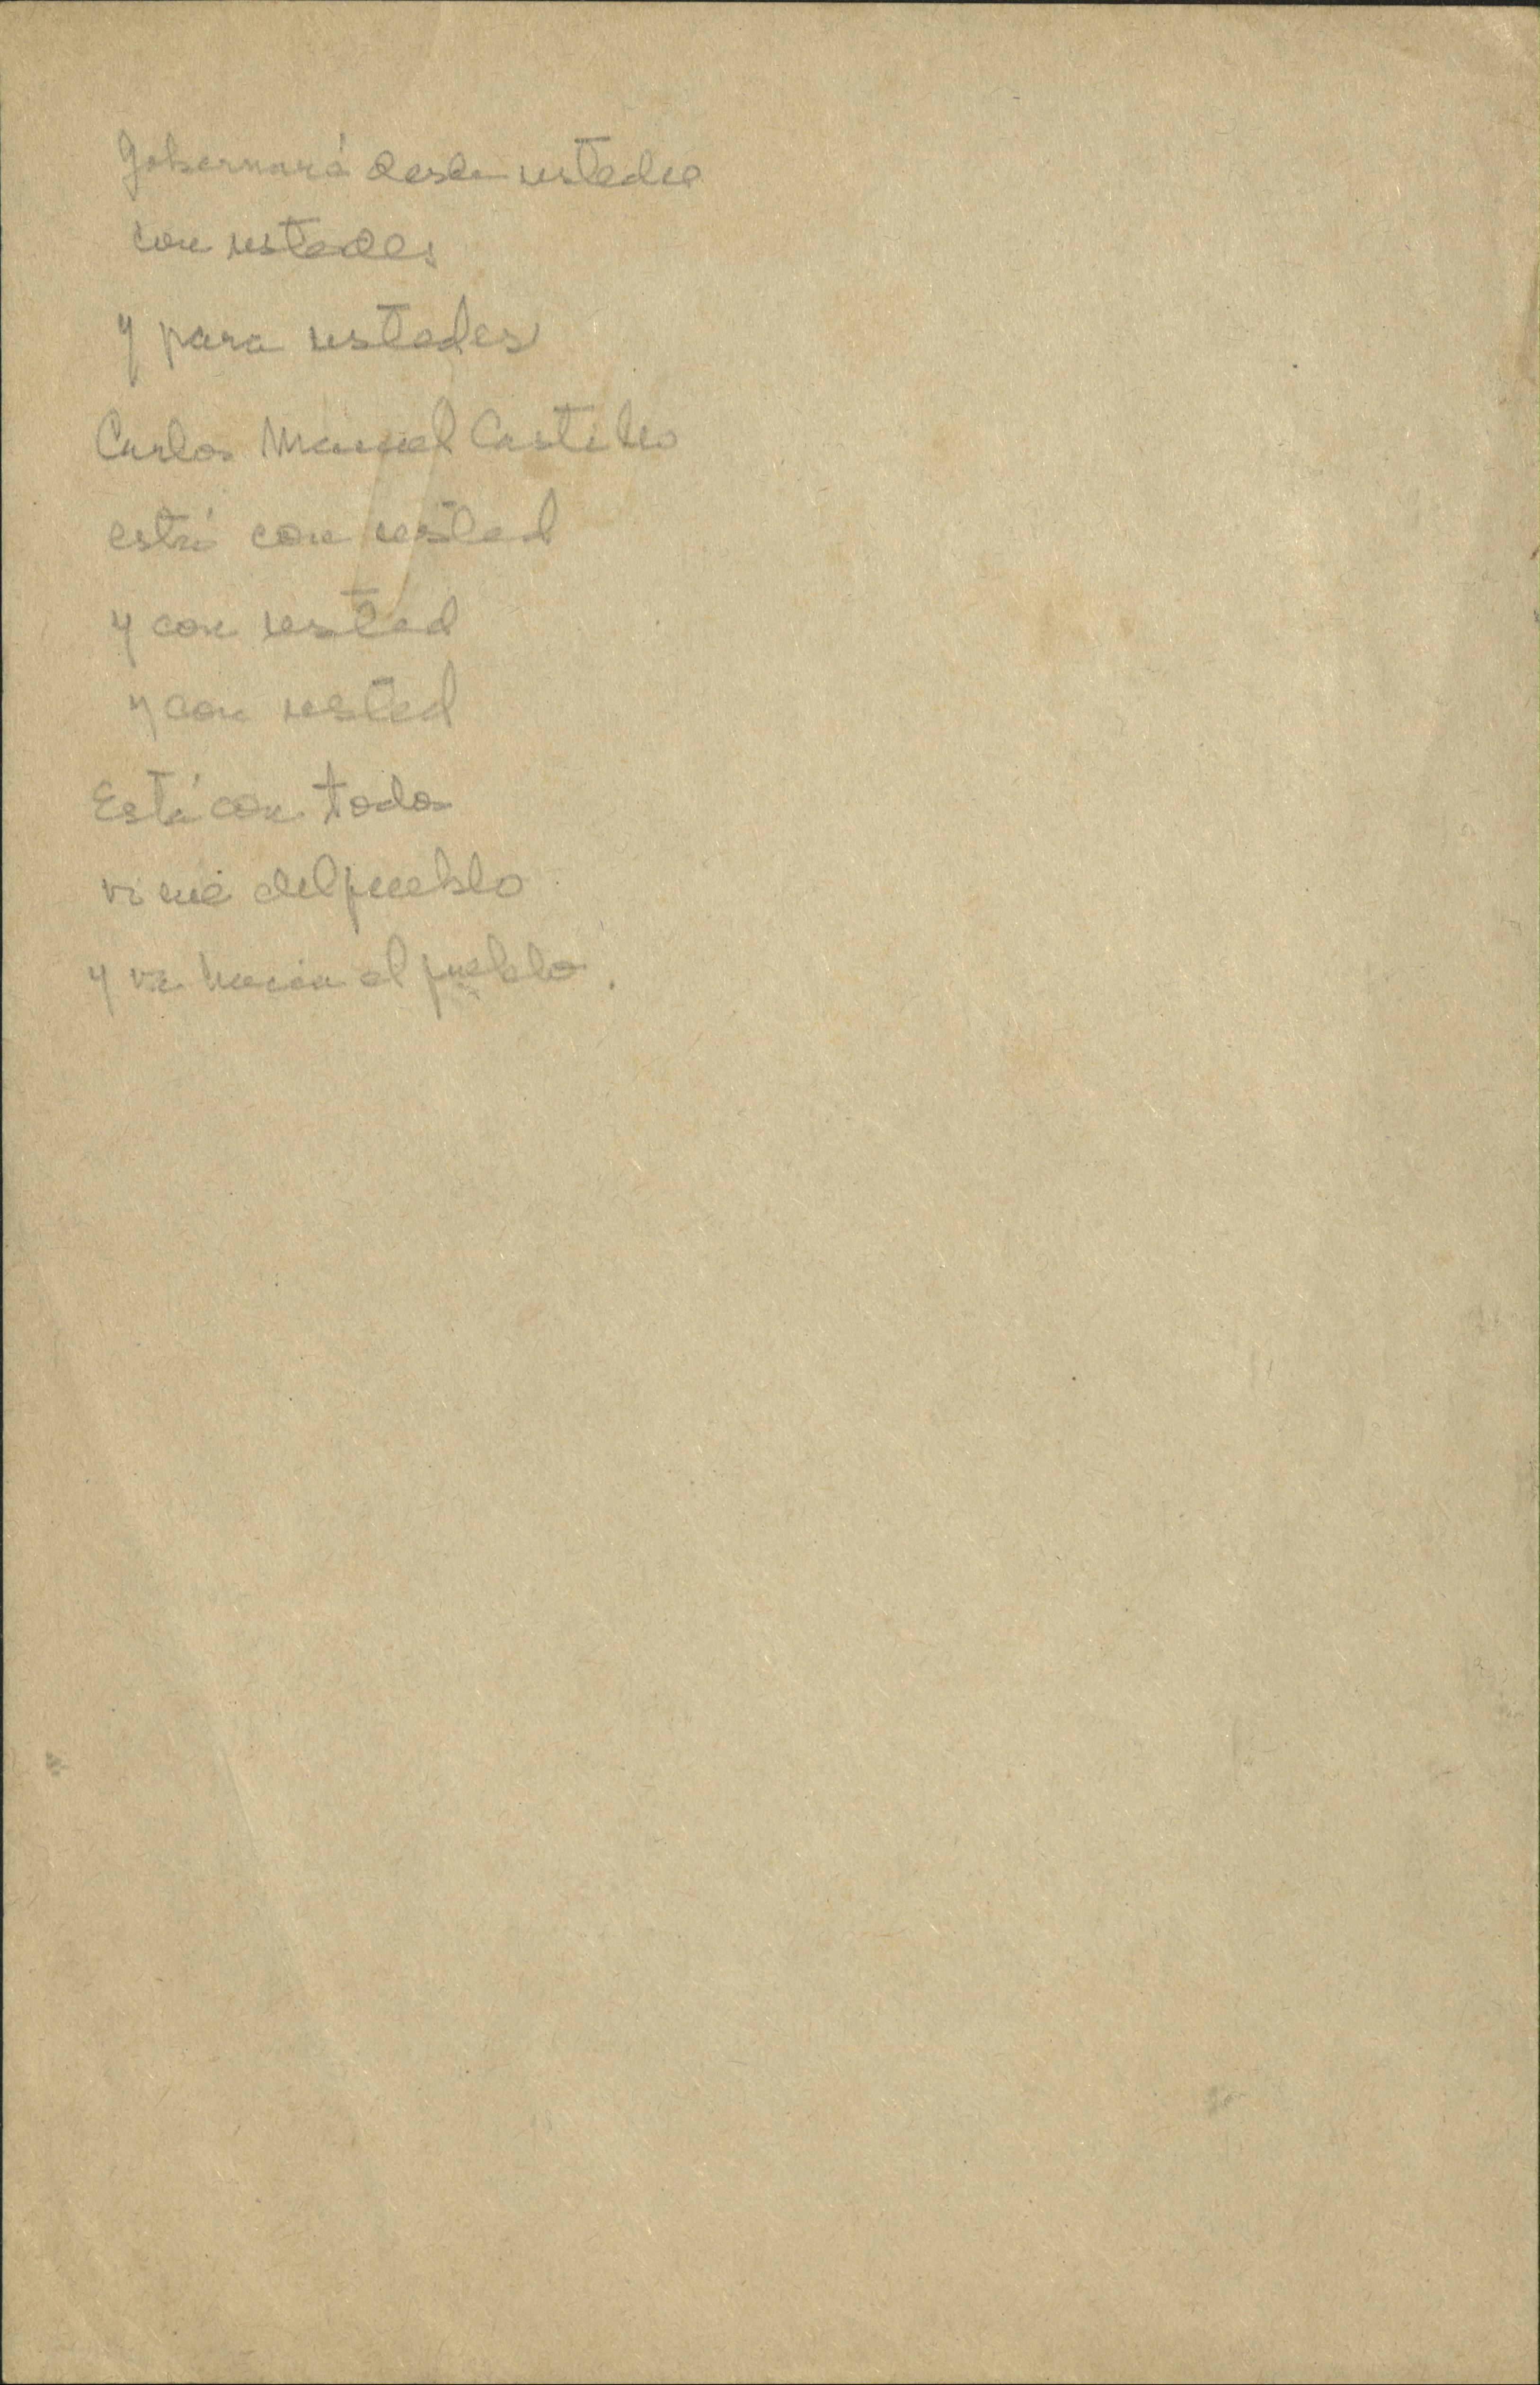 Gobernará desde ustedes
con ustedes
y para ustedes
Carlos Manuel Castillo
está con usted
y con usted
y con usted
Está con todos
viene del pueblo
y va hacia el pueblo.